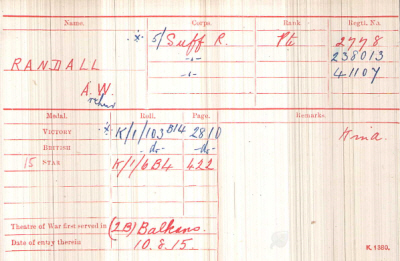 Name. Corps. Rank Regtl. No.
RANDALL
A. W.
* 5/Suff R. Pte 2778
-"- 238013
-"- 41107
Medal. Roll. Page. Remarks.
VICTORY * K/1/103 B14 2810
BRITISH -do- -do-
15 STAR K/1/6 B4 422
K in a.
Theatre of War first served in (2B) Balkans.
Date of entry therein 10.8.15.
K. 1380.